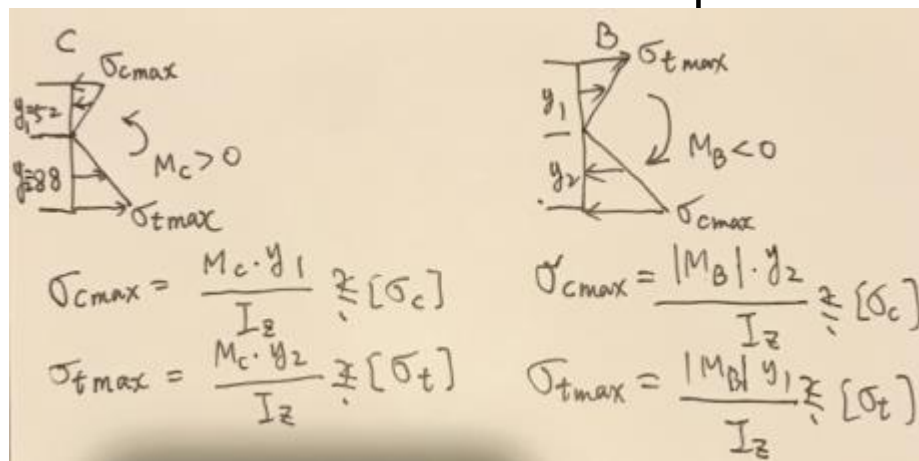 C
σcmax
y₁=52
Mc>0
y₂=88
σtmax
σcmax = Mc·y₁ / Iz ≤? [σc]
σtmax = Mc·y₂ / Iz ≤? [σt]
B
σtmax
y₁
M_B<0
y₂
σcmax
σcmax = |M_B|·y₂ / Iz ≤? [σc]
σtmax = |M_B| y₁ / Iz ≤? [σt]